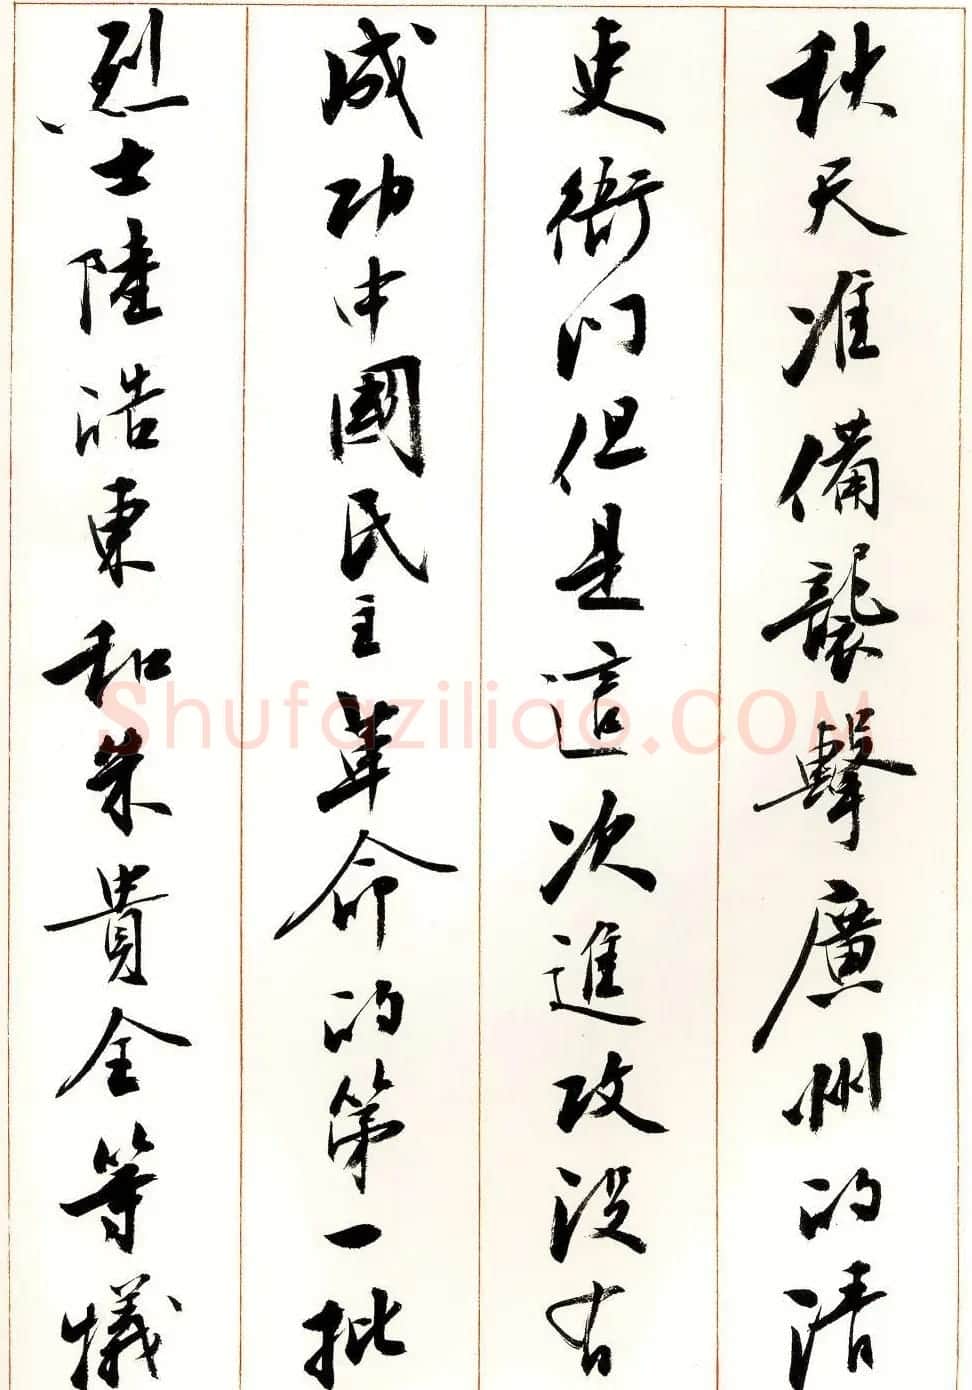 秋天准備襲擊廣州的清
吏衙门但是這次進攻没有
成功中國民主革命的第一批
烈士陸浩東和朱貴全等犠
Shufaziliao.COM